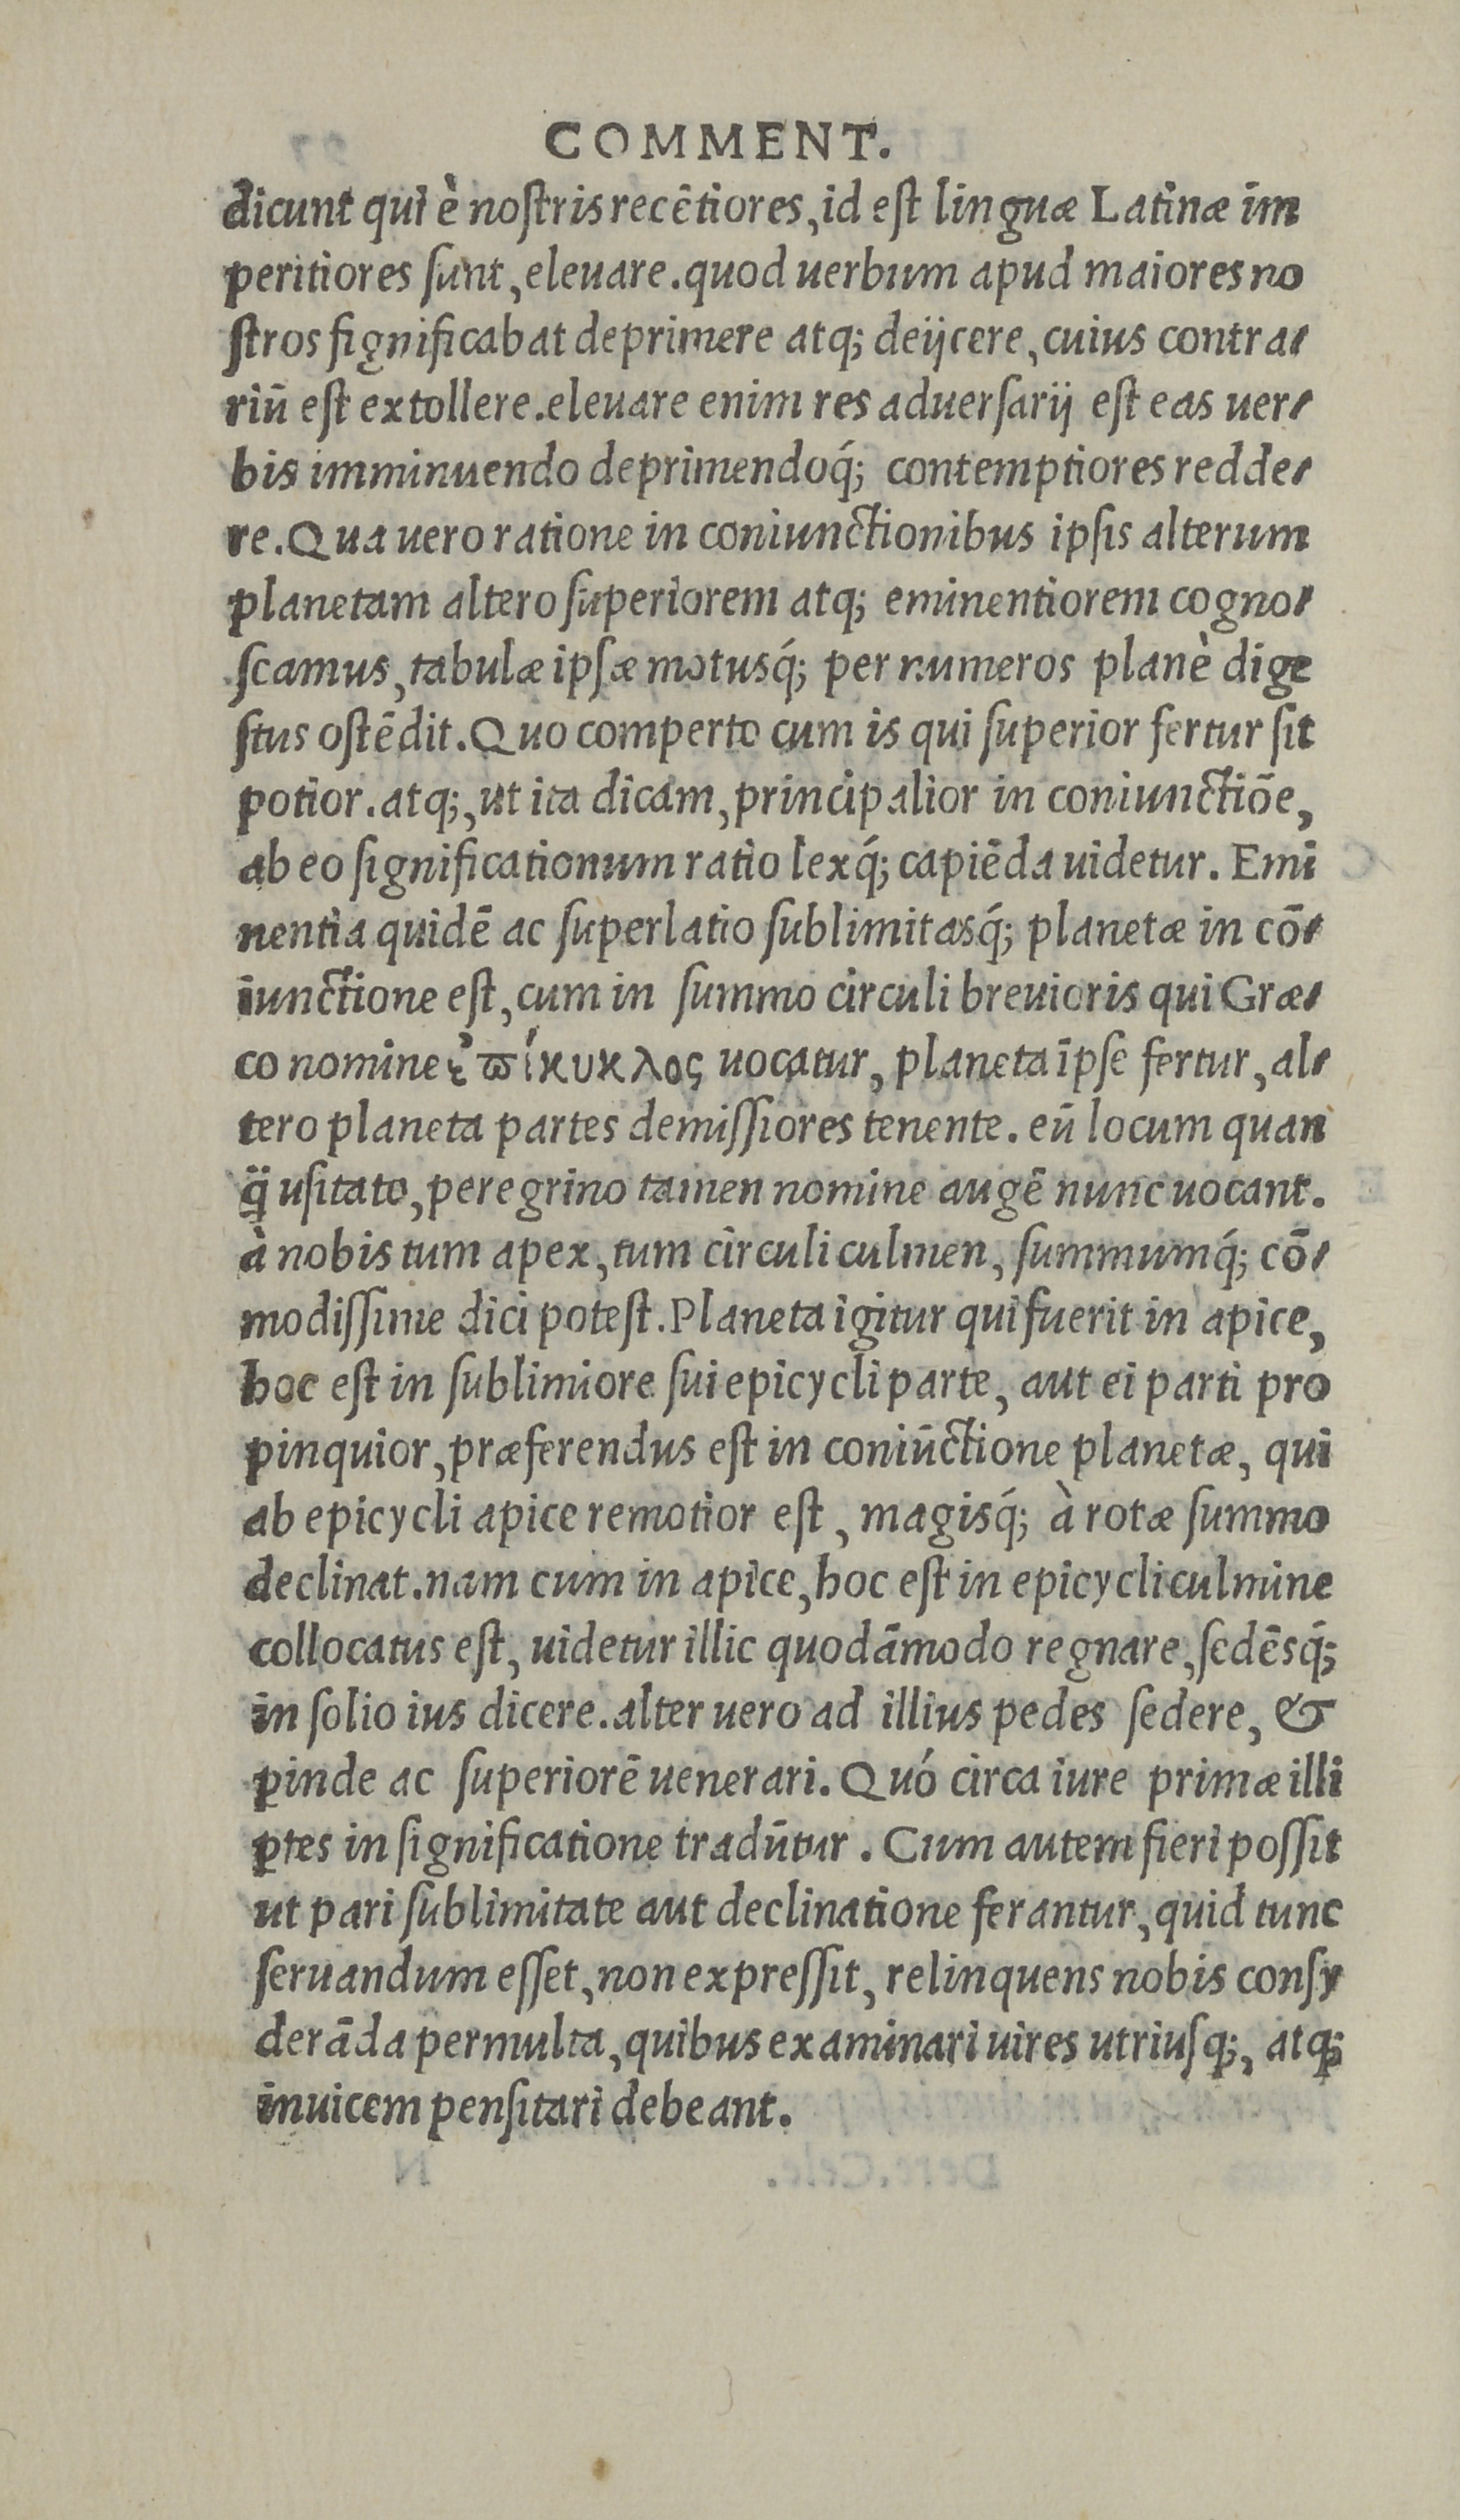 COMMENT.
dicunt qui è nostris recētiores, id est linguæ Latinæ im
peritiores sunt, eleuare. quod uerbum apud maiores no
stros significabat deprimere atq; deijcere, cuius contra-
riū est extollere. eleuare enim res aduersarij est eas uer-
bis imminuendo deprimendoq́; contemptiores redde-
re. Qua uero ratione in coniunctionibus ipsis alterum
planetam altero superiorem atq; eminentiorem cogno-
scamus, tabulæ ipsæ motusq́; per numeros planè dige
stus ostēdit. Quo comperto cum is qui superior fertur sit
potior. atq;, ut ita dicam, principalior in coniunctiōe,
ab eo significationum ratio lexq́; capiēda uidetur. Emi
nentia quidē ac superlatio sublimitasq́; planetæ in cō-
iunctione est, cum in summo circuli breuioris qui Græ-
co nomine ἐπίκυκλος uocatur, planeta ipse fertur, al-
tero planeta partes demissiores tenente. eū locum quan
q̈ usitato, peregrino tamen nomine augē nunc uocant.
à nobis tum apex, tum circuli culmen, summumq́; cō-
modissime dici potest. Planeta igitur qui fuerit in apice,
hoc est in sublimiore sui epicycli parte, aut ei parti pro
pinquior, præferendus est in coniūctione planetæ, qui
ab epicycli apice remotior est, magisq́; à rotæ summo
declinat. nam cum in apice, hoc est in epicycli culmine
collocatus est, uidetur illic quodāmodo regnare, sedēsq́;
in solio ius dicere. alter uero ad illius pedes sedere, &
ꝑinde ac superiorē uenerari. Quó circa iure primæ illi
ꝑtes in significatione tradūtur. Cum autem fieri possit
ut pari sublimitate aut declinatione ferantur, quid tunc
seruandum esset, non expressit, relinquens nobis consy
derāda permulta, quibus examinari uires utriusq;, atq;
inuicem pensitari debeant.